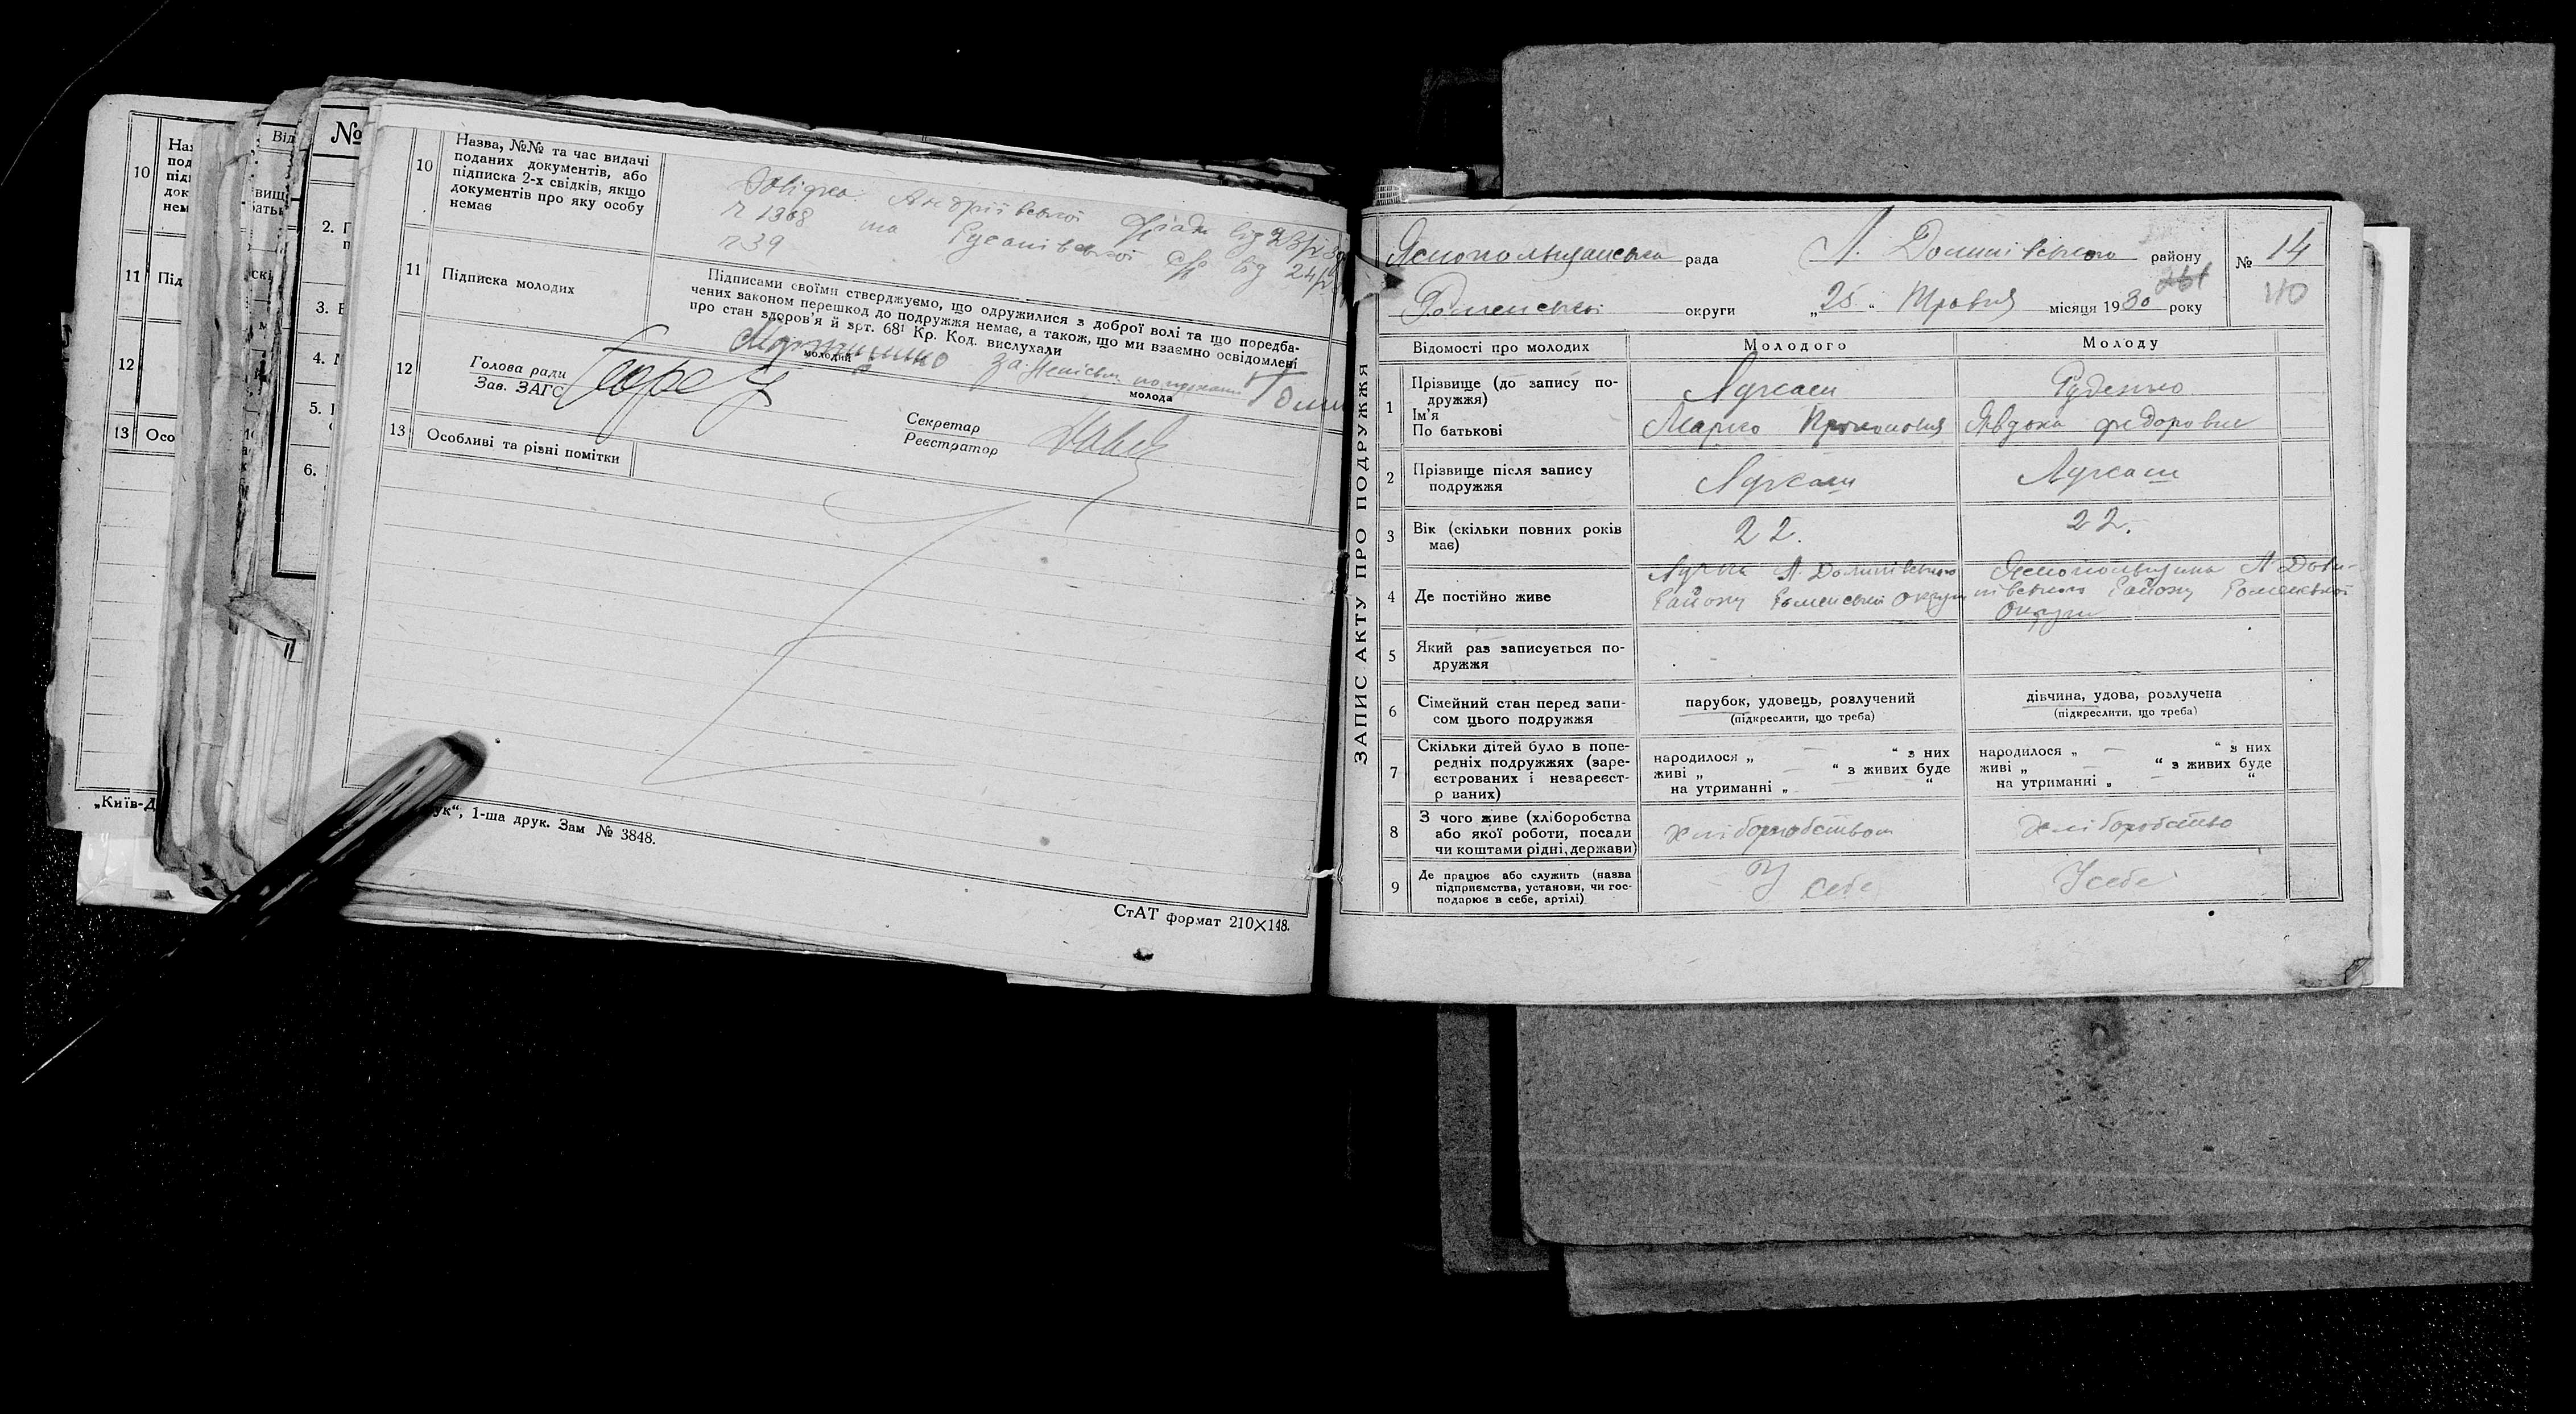 10
Назва, №№ та час видачі
поданих документів, або
підписка 2-х свідків, якщо
документів про яку особу
немає
Довідка Андріївської с/ради від 23/V 30
№ 1368 та Русанівської с/р від 24/V
№ 39
11
Підписка молодих
Підписами своїми стверджуємо, що одружилися з доброї волі та що передба-
чених законом перешкод до подружжя немає, а також, що ми взаємно освідомлені
про стан здоров'я й арт. 68¹ Кр. Код. вислухали
молодий
молода
12
Голова ради
Зав. ЗАГС
Секретар
Реєстратор
13
Особливі та різні помітки
ук“, 1-ша друк. Зам № 3848.
СтАТ формат 210×148.
10
11
12
13 Осо
„Київ-Д
№
2.
3.
4.
5.
6.
ЗАПИС АКТУ ПРО ПОДРУЖЖЯ
Яснопольщанська рада Л. Долинівського району № 14
Роменської округи „25“ Травня місяця 1930 року 110
Відомості про молодих Молодого Молоду
1 Прізвище (до запису по-
дружжя)
Ім'я
По батькові
Руденко
Марко Явдоха Федоровна
2 Прізвище після запису
подружжя
3 Вік (скільки повних років
має)
22. 22.
4 Де постійно живе
Л. Долинівського
Району Роменської Округи
Яснопольщина Л. Доли-
нівського Району Роменської
Округи
5 Який раз записується по-
дружжя
6 Сімейний стан перед запи-
сом цього подружжя
парубок, удовець, розлучений
(підкреслити, що треба)
дівчина, удова, розлучена
(підкреслити, що треба)
7 Скільки дітей було в попе-
редніх подружжях (заре-
єстрованих і незареєст-
р ваних)
народилося „ — “ з них
живі „ — “ з живих буде
на утриманні „ — “
народилося „ — “ з них
живі „ — “ з живих буде
на утриманні „ — “
8 З чого живе (хліборобства
або якої роботи, посади
чи коштами рідні, держави)
хліборобством хліборобство
9 Де працює або служить (назва
підприємства, установи, чи гос-
подарює в себе, артілі)
У себе У себе